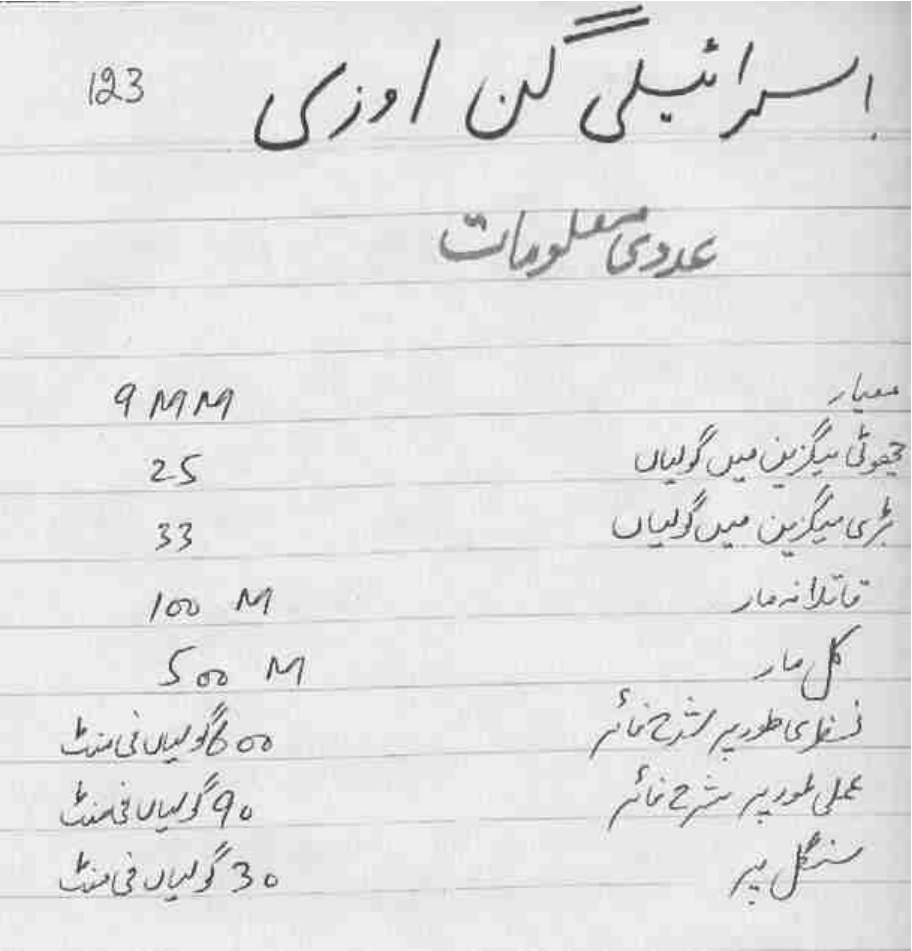 اسرائیلی گن اوزی 123
عددی معلومات
معیار 9 MM
چھوٹی میگزین میں گولیاں 25
بڑی میگزین میں گولیاں 33
قاتلانہ مار 100 M
کل مار 500 M
نظری طور پر شرح فائر 600 گولیاں فی منٹ
عملی طور پر شرح فائر 90 گولیاں فی منٹ
سنگل پر 30 گولیاں فی منٹ